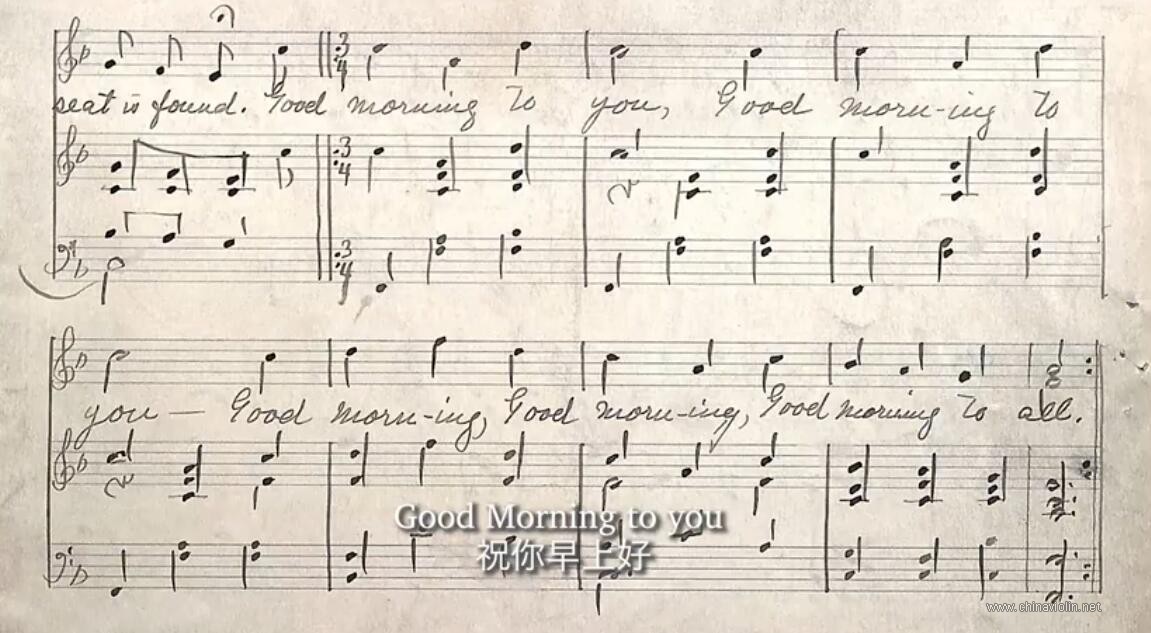 seat is found. Good morning to you, Good morn-ing to
you — Good morn-ing, Good morn-ing, Good morning to all.
Good Morning to you
祝你早上好
www.chinaviolin.net